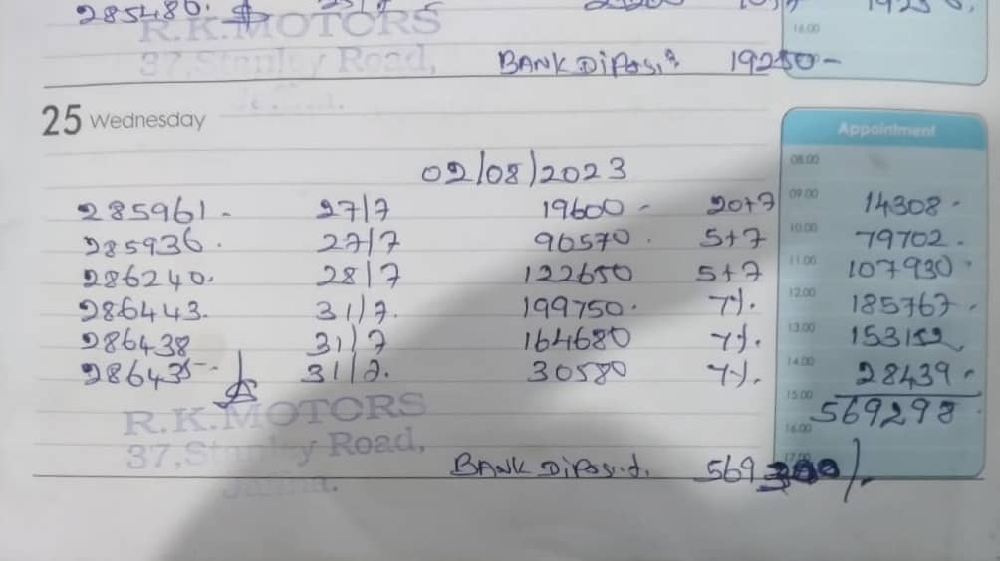 285486.
R.K.MOTORS
37,Stanley Road,
BANK Diposit 19250-
25 Wednesday
Appointment
02/08/2023
08.00
285961- 27/7 19600- 20+7 09.00 14308-
285936. 27/7 96570. 5+7 10.00 79702.
286240. 28/7 122650 5+7 11.00 107930
286443. 31/7. 199750. 7%. 12.00 185767.
286438 31/7 164680 7%. 13.00 153152
286435- 31/7. 30580 7%. 14.00 28439.
15.00 569298
R.K.MOTORS
16.00
37,Stanley Road,
Jaffna.
17.00
BANK Diposit. 569300/.